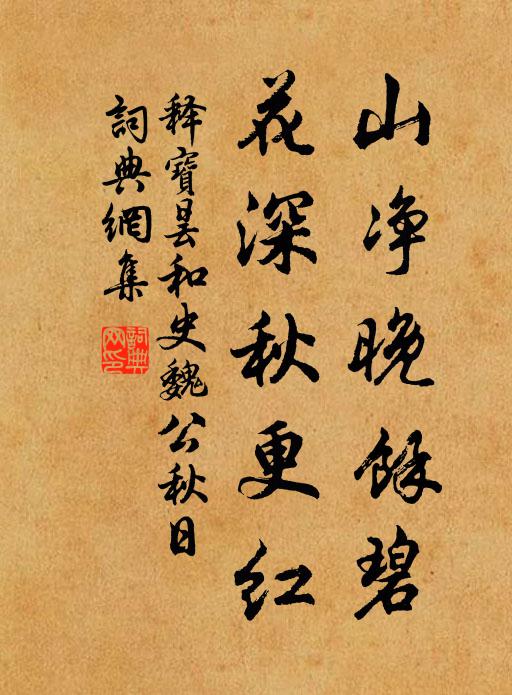 山净晚餘碧
花深秋更红
释寶昙和史魏公秋日
詞典網集
詞典
网印